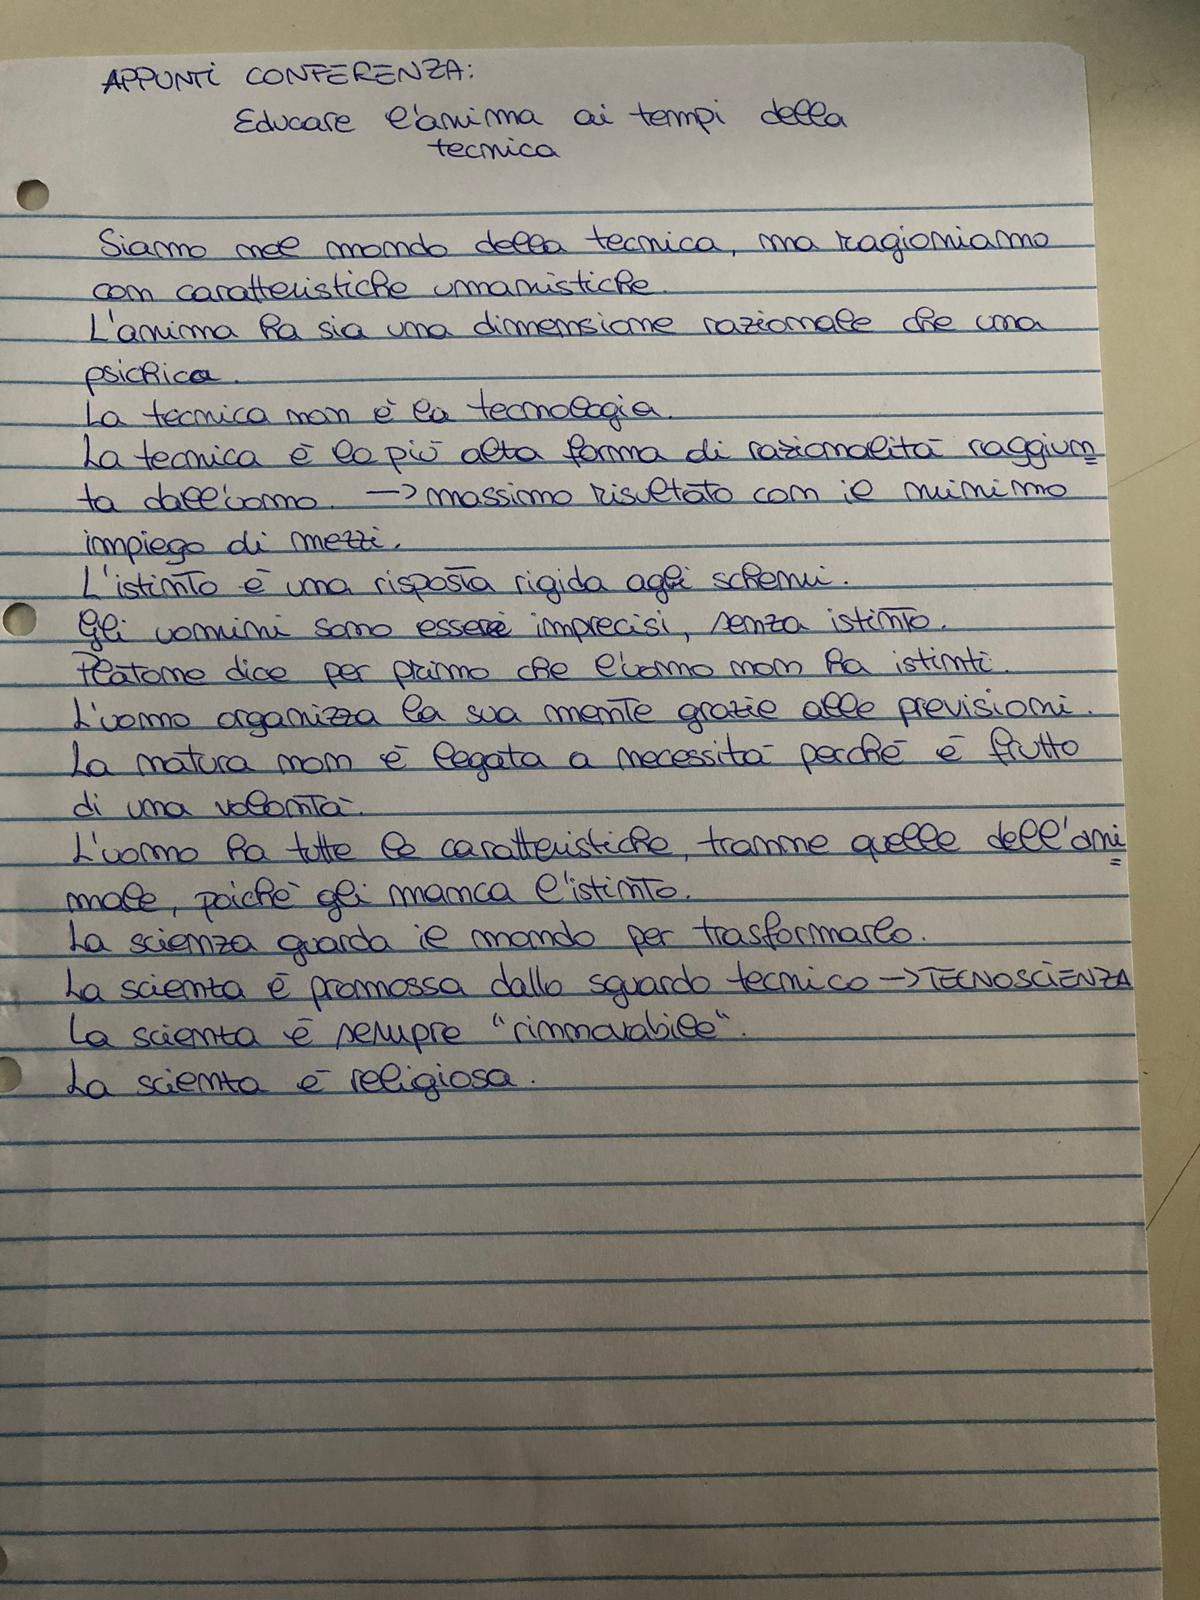 APPUNTI CONFERENZA:
Educare l'anima ai tempi della
tecnica
Siamo nel mondo della tecnica, ma ragioniamo
con caratteristiche umanistiche.
L'anima ha sia una dimensione razionale che una
psichica.
La tecnica non è la tecnologia.
La tecnica è la più alta forma di razionalità raggiun=
ta dall'uomo. → massimo risultato con il minimo
impiego di mezzi.
L'istinto è una risposta rigida agli schemi.
Gli uomini sono esseri imprecisi, senza istinto.
Platone dice per primo che l'uomo non ha istinti.
L'uomo organizza la sua mente grazie alle previsioni.
La natura non è legata a necessità perché è frutto
di una volontà.
L'uomo ha tutte le caratteristiche, tranne quelle dell'ani=
male, poiché gli manca l'istinto.
La scienza guarda il mondo per trasformarlo.
La scienza è promossa dallo sguardo tecnico → TECNOSCIENZA
La scienza è sempre "rinnovabile".
La scienza è religiosa.